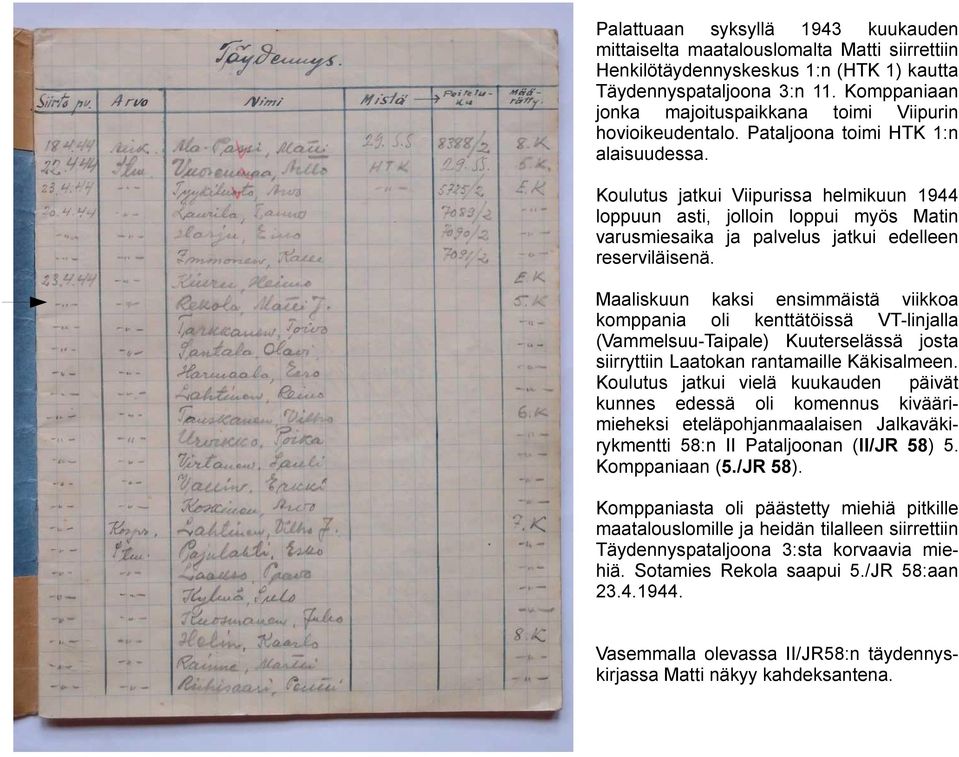 Täydennys.
Siirto pv. Arvo Nimi Mistä → Poistelu- ku Mää- rätty.
18.4.44 Ma-Passi, Matti 29.SS 8388/2 8.K
22.4.44 Stm. Vuorenmaa, Artto HTK 29.SS. 5.K.
23.4.44 -"- Tyykiluoto, Arvo -"- 5725/2 E.K
20.4.44 -"- Laurila, Tauno 7089/2 -"-
-"- -"- Harju, Eino 7090/2 -"-
-"- -"- Immonen, Kalle 7091/2 -"-
23.4.44 -"- Kiuru, Heimo E.K
-"- -"- Rekola, Matti J. 5.K
-"- -"- Tarkkanen, Toivo -"-
-"- -"- Santala, Olavi -"-
-"- -"- Harmaala, Eero -"-
-"- -"- Lahtinen, Reino -"-
-"- -"- Tanskanen, Vilho 6.K
-"- -"- Urvikko, Poika -"-
-"- -"- Virtanen, Lauli -"-
-"- -"- Vallin, Erkki -"-
-"- -"- Koskinen, Arvo -"-
-"- Korpr. Lahtinen, Vilho J. 7.K
-"- Stm. Pajulahti, Esko -"-
-"- -"- Laakso, Paavo -"-
-"- -"- Kylmä, Sulo -"-
-"- -"- Kuosmanen, Juho -"-
-"- -"- Helin, Kaarlo 8.K
-"- -"- Rainne, Martti -"-
-"- -"- Riihisaari, Pentti -"-
Palattuaan syksyllä 1943 kuukauden
mittaiselta maatalouslomalta Matti siirrettiin
Henkilötäydennyskeskus 1:n (HTK 1) kautta
Täydennyspataljoona 3:n 11. Komppaniaan
jonka majoituspaikkana toimi Viipurin
hovioikeudentalo. Pataljoona toimi HTK 1:n
alaisuudessa.
Koulutus jatkui Viipurissa helmikuun 1944
loppuun asti, jolloin loppui myös Matin
varusmiesaika ja palvelus jatkui edelleen
reserviläisenä.
Maaliskuun kaksi ensimmäistä viikkoa
komppania oli kenttätöissä VT-linjalla
(Vammelsuu-Taipale) Kuuterselässä josta
siirryttiin Laatokan rantamaille Käkisalmeen.
Koulutus jatkui vielä kuukauden päivät
kunnes edessä oli komennus kivääri-
mieheksi eteläpohjanmaalaisen Jalkaväki-
rykmentti 58:n II Pataljoonan (II/JR 58) 5.
Komppaniaan (5./JR 58).
Komppaniasta oli päästetty miehiä pitkille
maatalouslomille ja heidän tilalleen siirrettiin
Täydennyspataljoona 3:sta korvaavia mie-
hiä. Sotamies Rekola saapui 5./JR 58:aan
23.4.1944.
Vasemmalla olevassa II/JR58:n täydennys-
kirjassa Matti näkyy kahdeksantena.